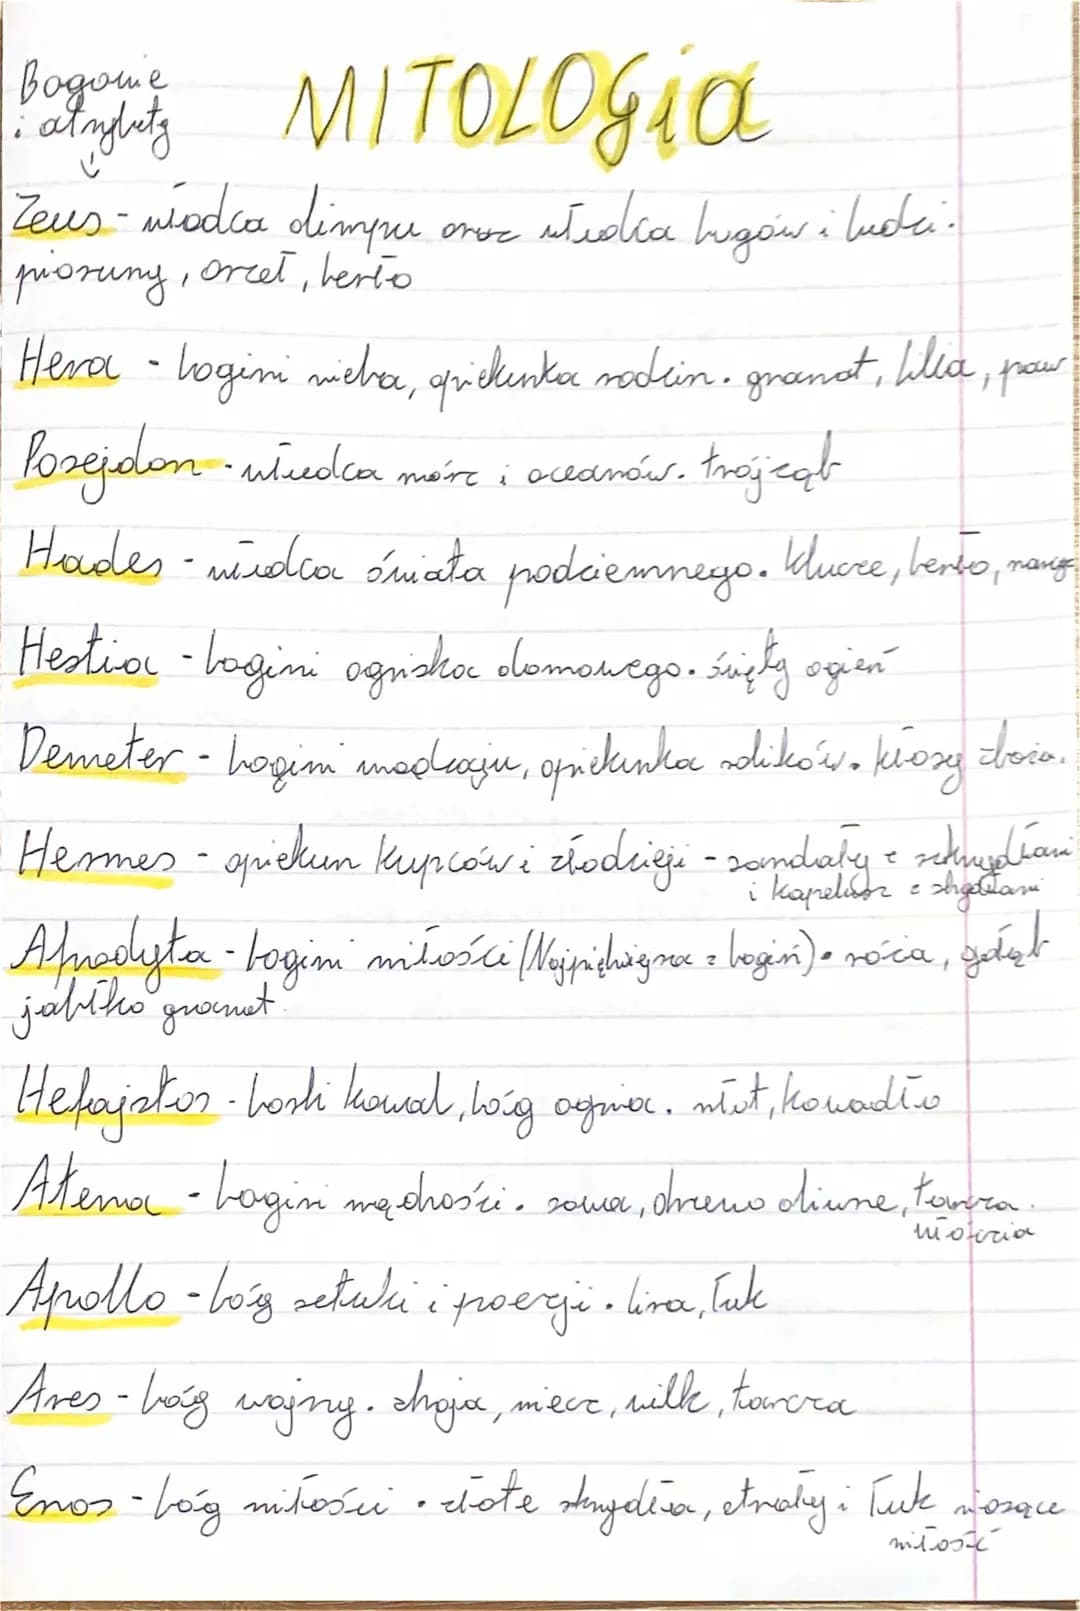 Bogowie
i atrybuty
MITOLOGia
Zeus - władca olimpu oraz władca bogów i ludzi.
pioruny, orzeł, berło
Hera - bogini nieba, opiekunka rodzin. granat, lilia, paw
Posejdon - władca mórz i oceanów. trójząb
Hades - władca świata podziemnego. klucze, berło,
Hestia - bogini ogniska domowego. święty ogień
Demeter - bogini urodzaju, opiekunka rolników. kłosy zboża.
Hermes - opiekun kupców i złodzieji - sandały z skrzydłami
i kapelusz z skrzydłami
Afrodyta - bogini miłości (Najpiękniejsza z bogiń). róża, gołąb
jabłko granat.
Hefajstos - boski kowal, bóg ognia. młot, kowadło
Atena - bogini mądrości. sowa, drzewo oliwne, tarcza.
włócznia
Apollo - bóg sztuki i poezji. lira, łuk
Ares - bóg wojny. zbroja, miecz, wilk, tarcza
Eros - bóg miłości. złote skrzydła, strzały i łuk niosące
miłość